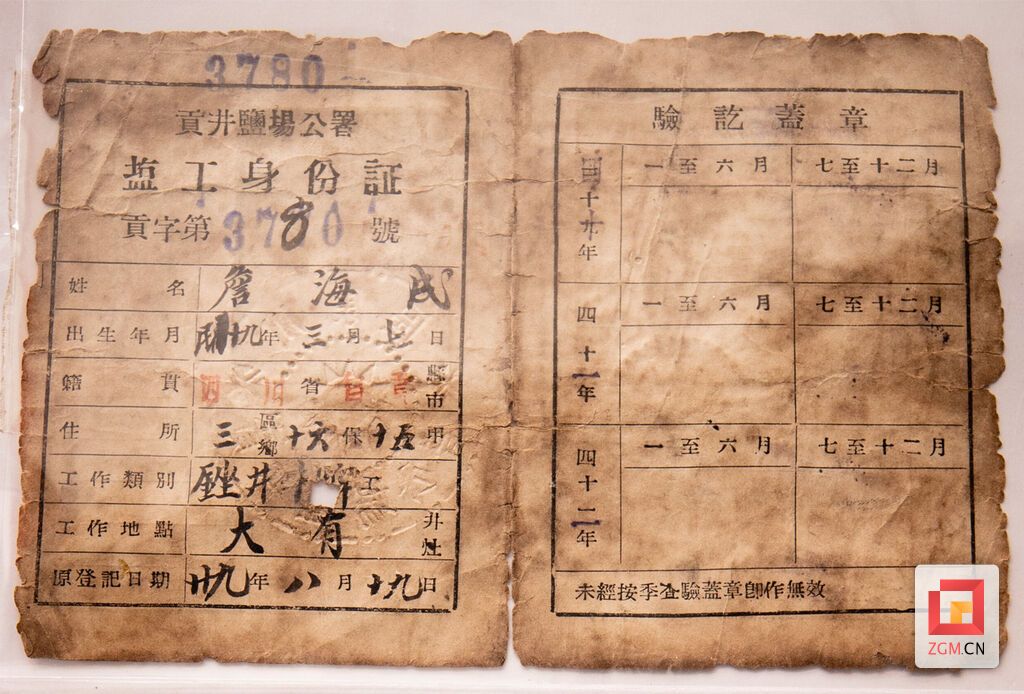 3780
貢井鹽場公署
塩工身份証
貢字第3780號
姓名 詹海成
出生年月 九年三月七日
籍貫 四川省自貢縣市
住所 三區鄉十六保十五甲
工作類別 銼井 工
工作地點 大有井灶
原登記日期 卅九年八月十九日
驗訖蓋章
四十九年 一至六月 七至十二月
四十一年 一至六月 七至十二月
四十二年 一至六月 七至十二月
未經按季查驗蓋章卽作無效
ZGM.CN